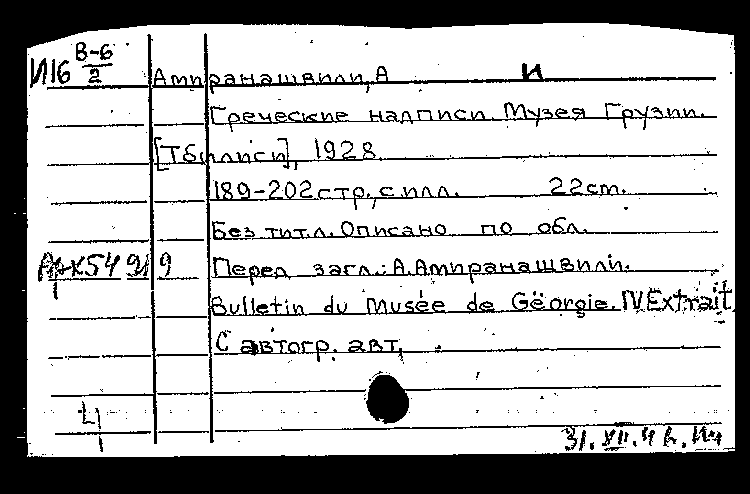 И16 В-6/2
Амиранашвили, А И
Греческие надписи Музея Грузии.
[Тбилиси], 1928.
189-202 стр., с илл. 22 cm.
Без тит. л. Описано по обл.
Перед загл.: А. Амиранашвили.
Bulletin du Musée de Gëorgie. IV Extrait.
С автогр. авт.
31. XII. 4